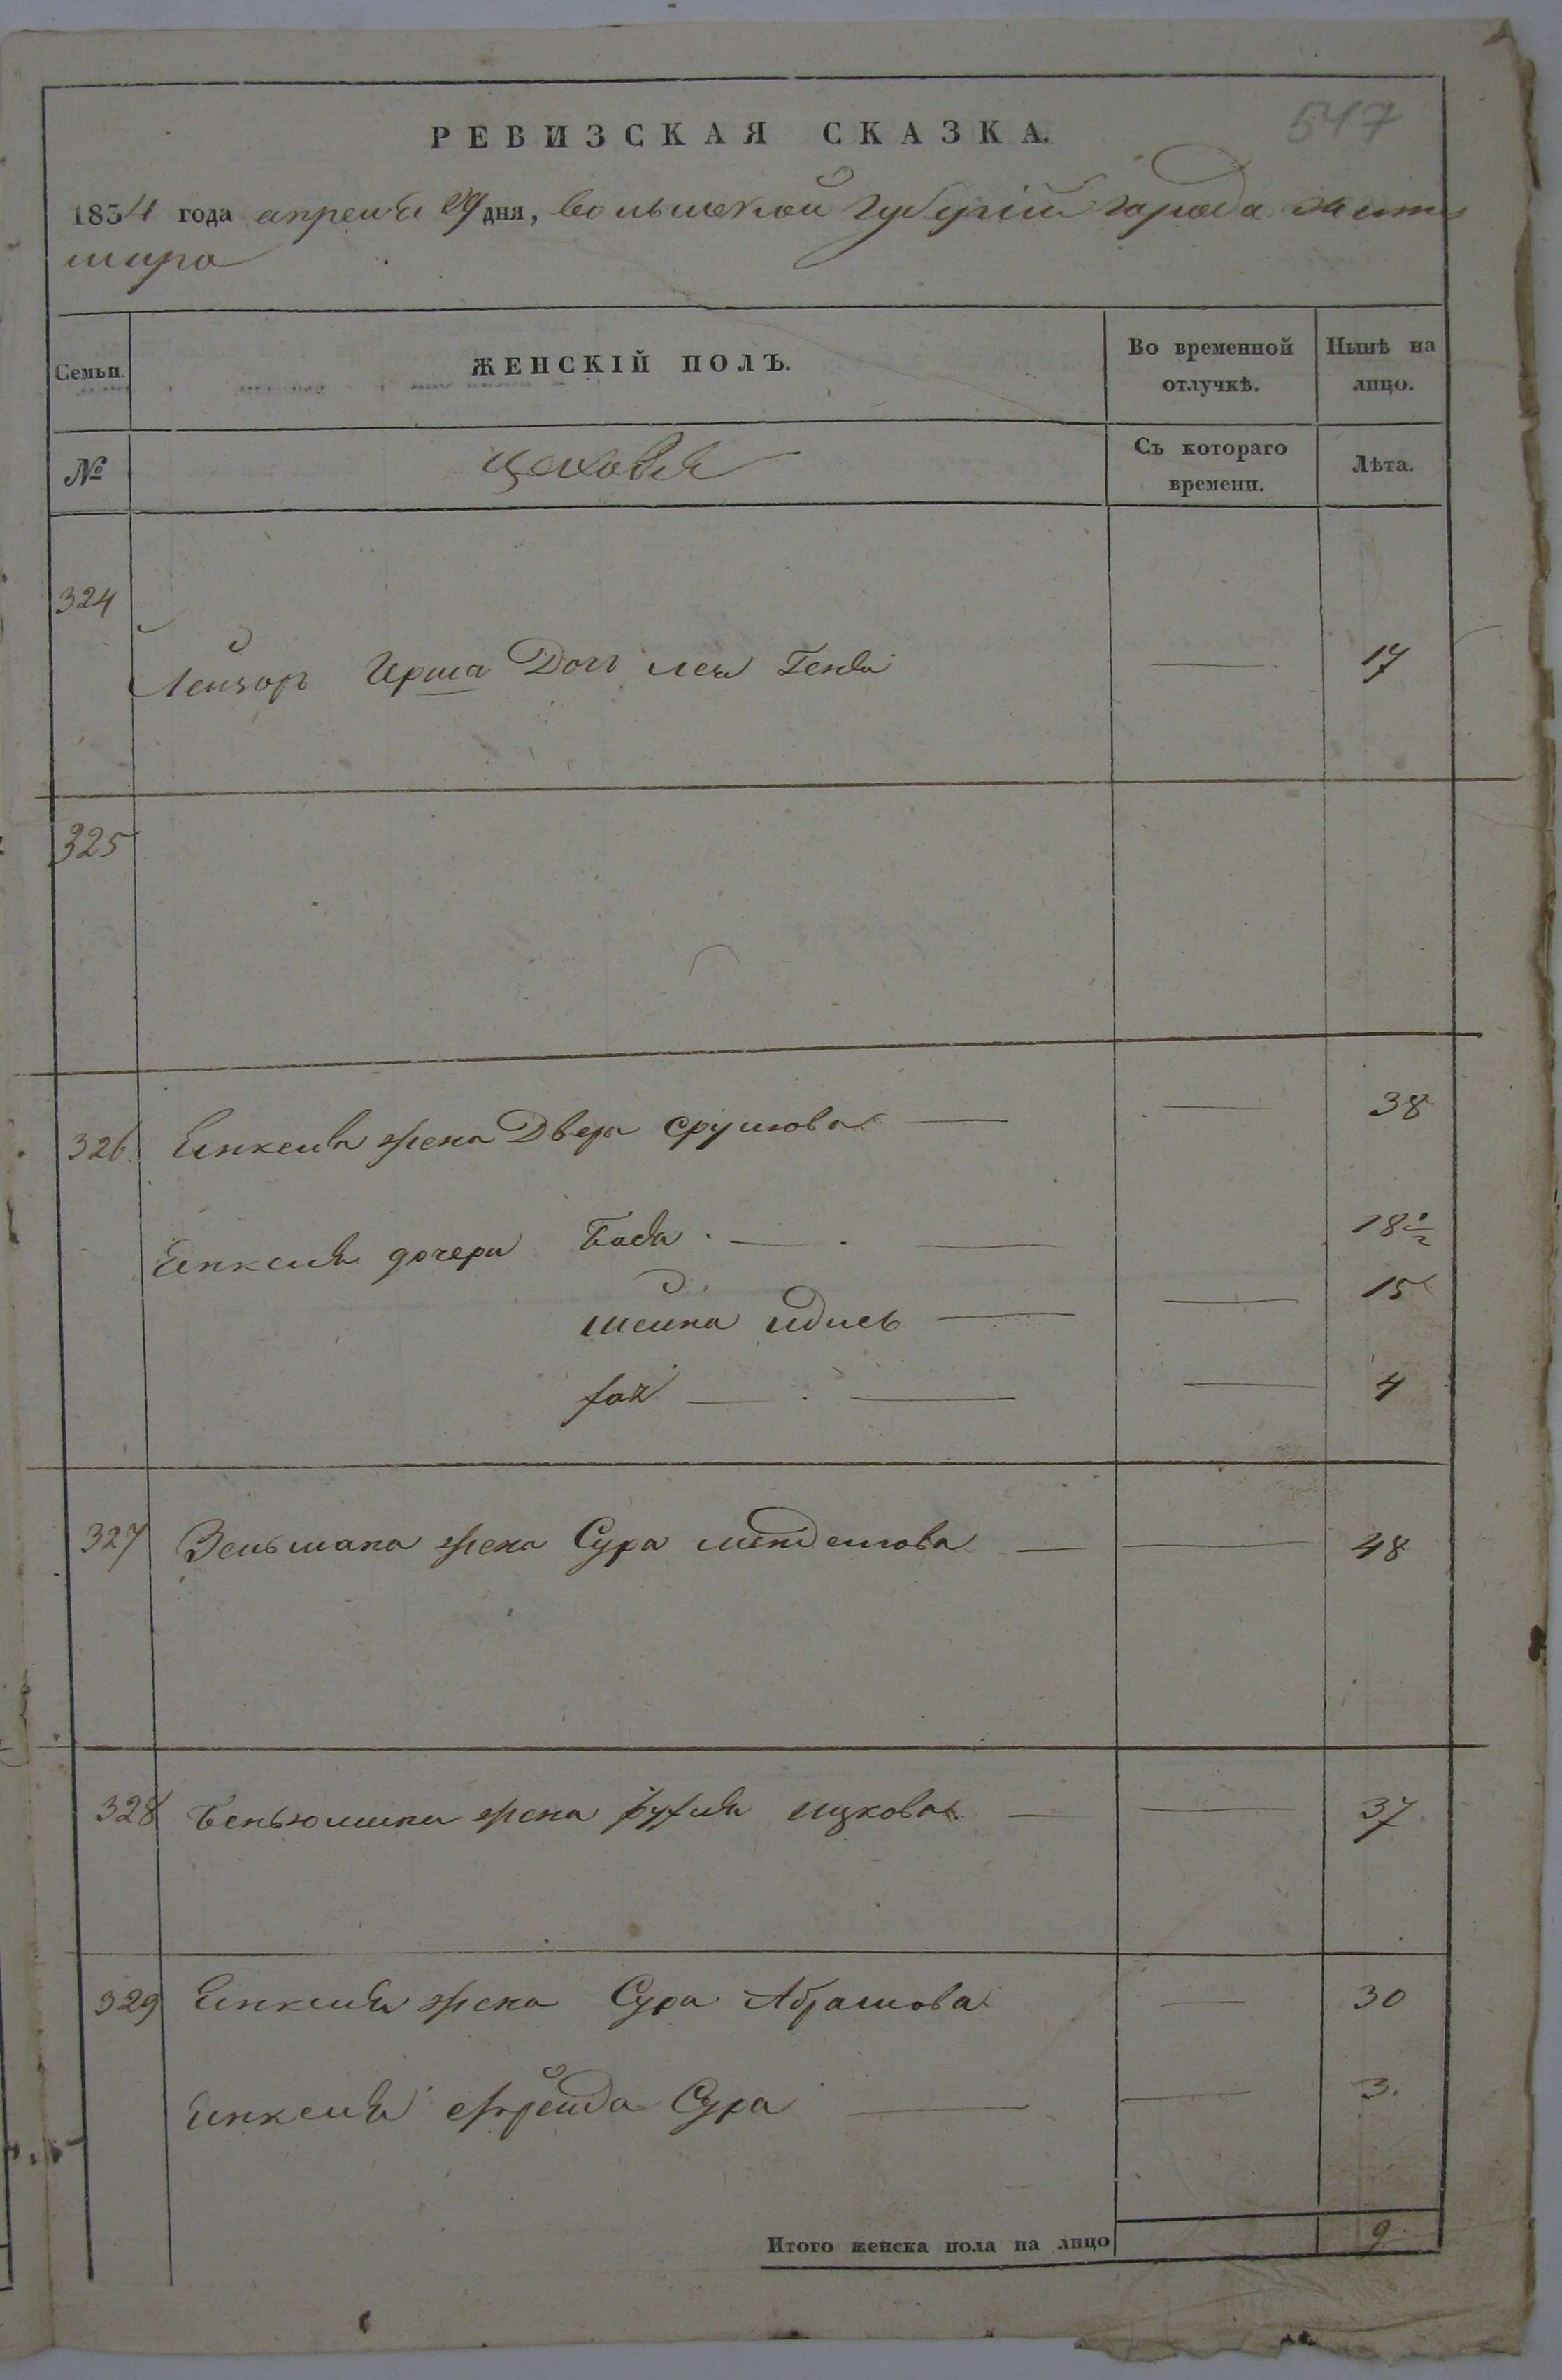 547
РЕВИЗСКАЯ СКАЗКА.
1834 года апреля 29 дня, волынской губерніи города жито
мира
Семьи. ЖЕНСКІЙ ПОЛЪ. Во временной отлучкѣ. Нынѣ на лицо.
№ цеховыя Съ котораго времени. Лѣта.
324
Лейзор Ирша Доч Леи Генда — 17
325
326 Янкеля жена Двера Срулова — — 38
Янкеля дочери Бася — — 18 1/2
шейна идись — — 15
хая — — — 4
327 Зельмана жена Сура менделова — — 48
328 Беньюмина жена рухля ицкова — — 37
329 Янкеля жена Сура Абрамова — 30
Янкеля фрейда Сура — — 3.
Итого женска пола на лицо 9.